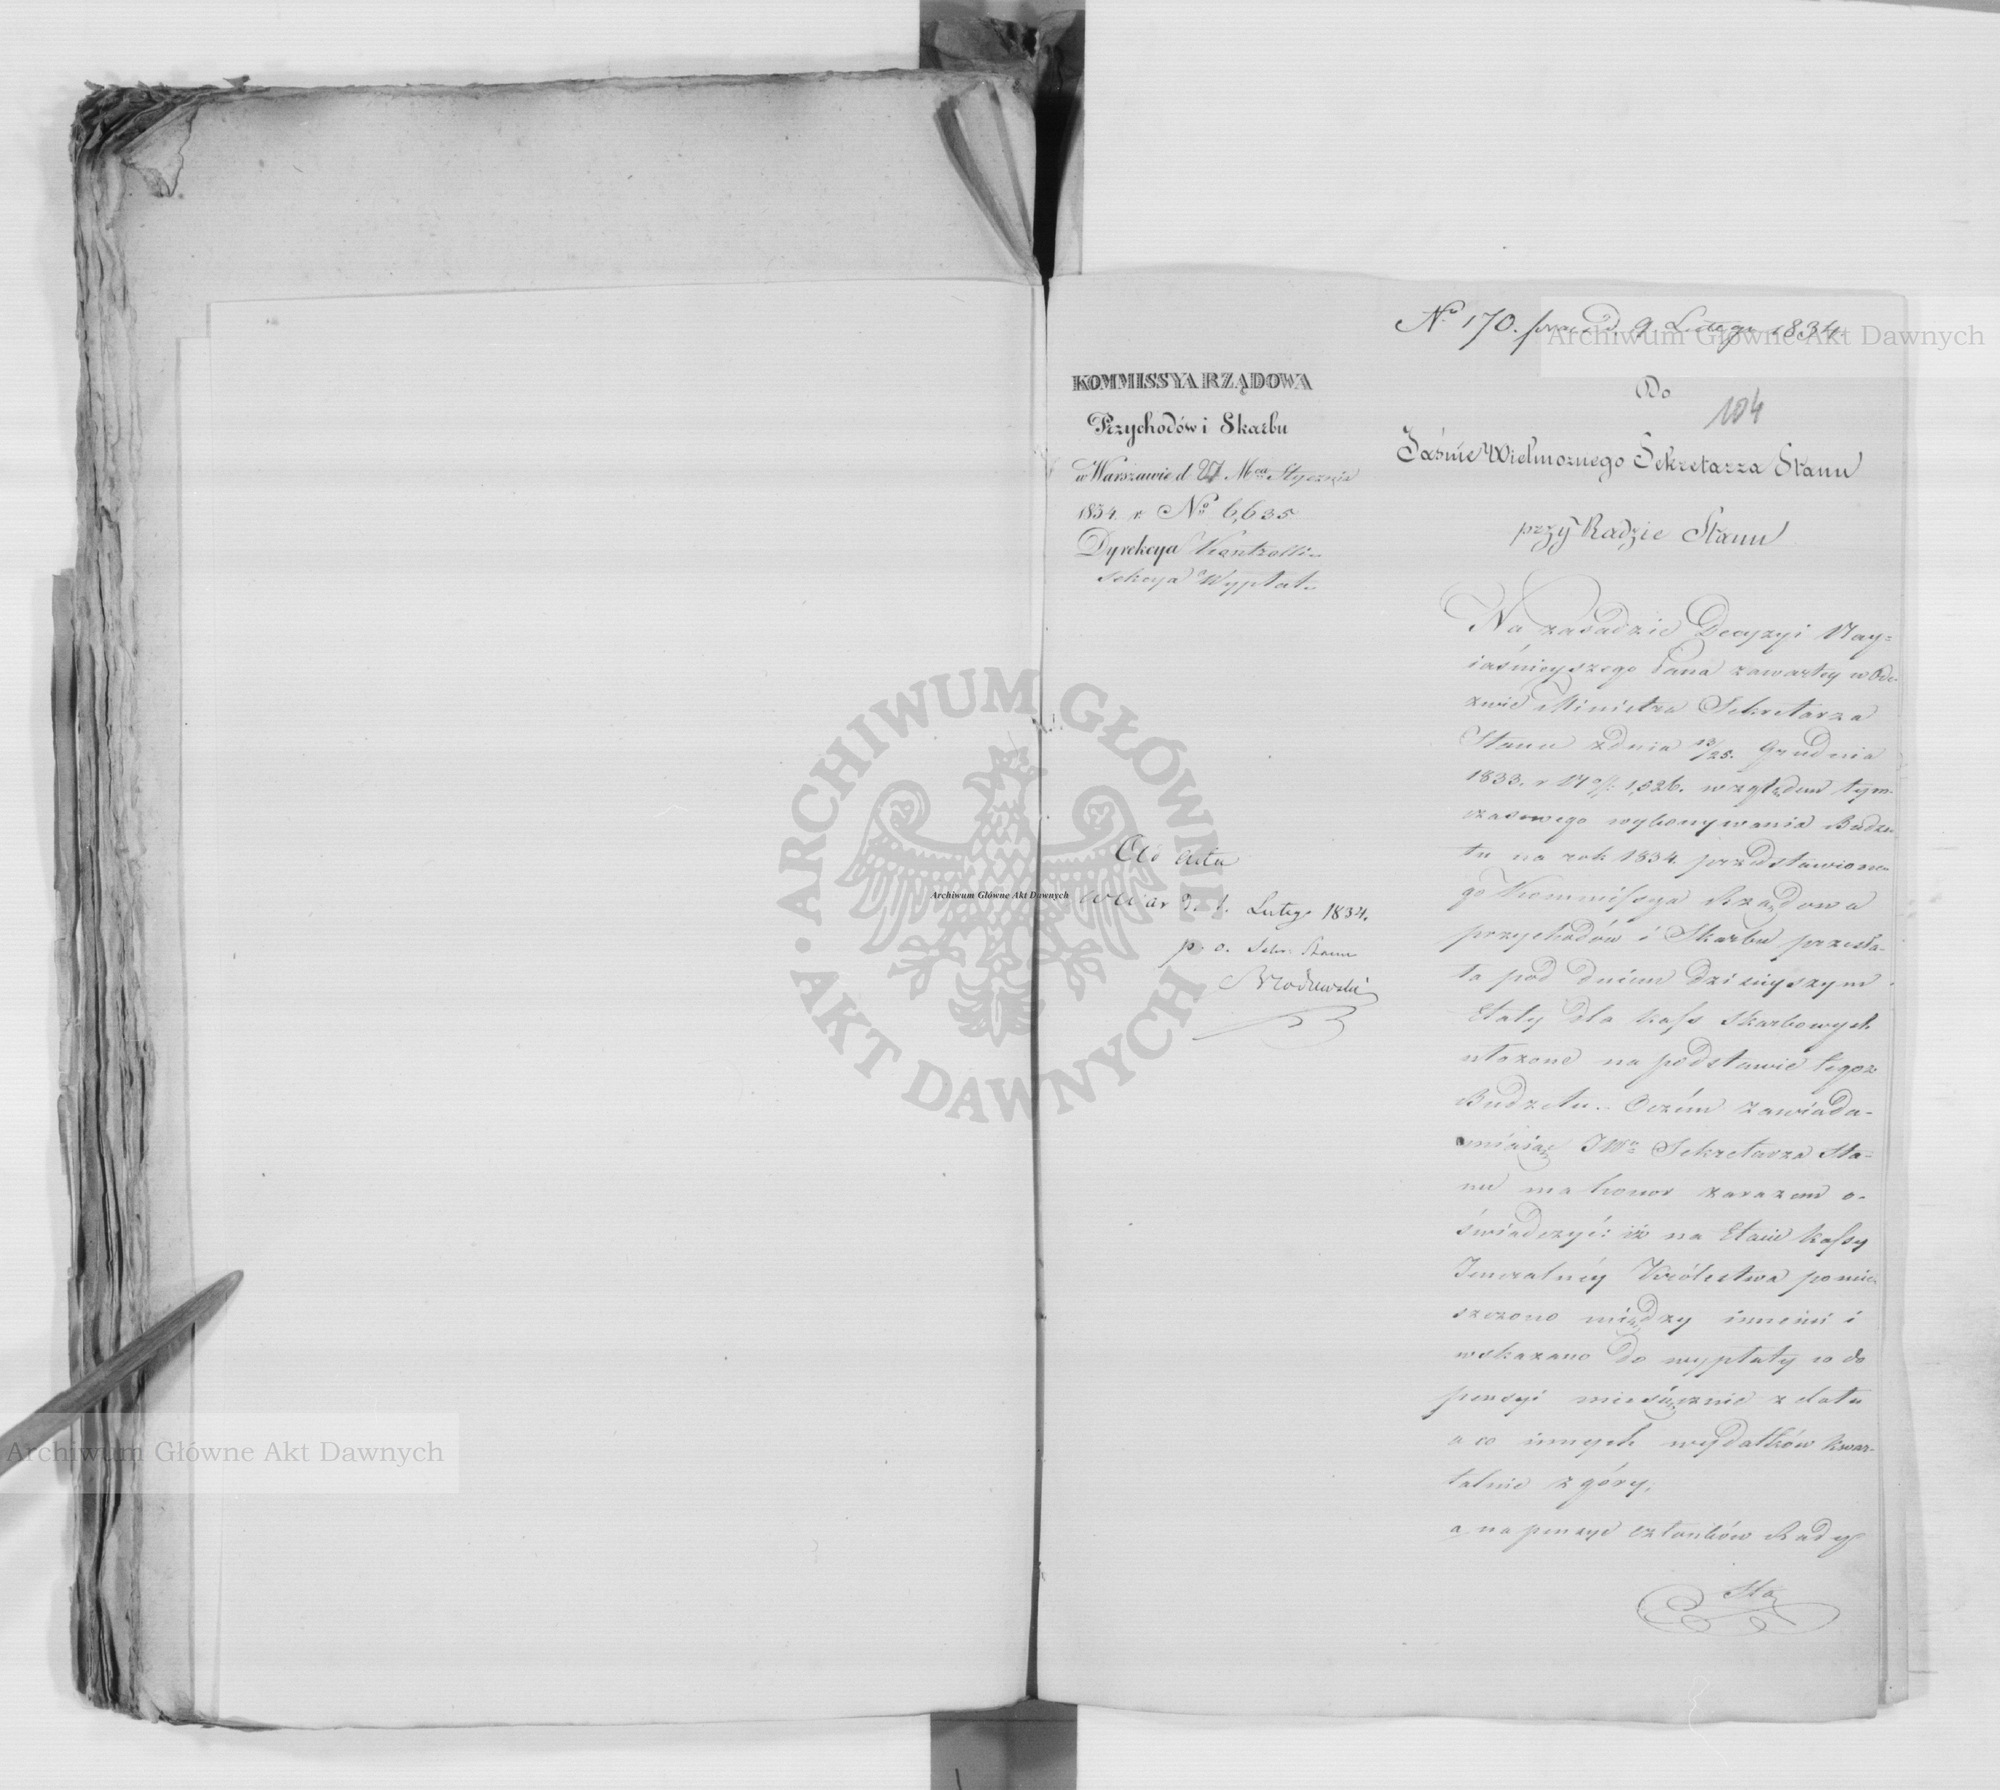 No 170. praes. d. 9. Lutego 1834.
104
KOMMISSYA RZĄDOWA
Przychodów i Skarbu
w Warszawie d 27 Mca Stycznia
1834. r. No 6,635
Dyrekcya Kontrolli
Sekcya Wypłat
Do
Jaśnie Wielmoznego Sekretarza Stanu
przy Radzie Stanu
Na zasadzie Decyzyi Nay=
iaśnieyszego Pana zawartey w Ode-
zwie Ministra Sekretarza
Stanu z dnia 13/25. Grudnia
1833. r No 1,026. względem tym-
czasowego wykonywania Budże-
tu na rok 1834. przedstawione-
go Kommissya Rządowa
przychodów i Skarbu przesła-
ła pod dniem dzisieyszym
Etaty dla Kass Skarbowych
ułożone na podstawie tegoz
Budżetu. O czém zawiada-
miaiąc JWo Sekretarza Sta-
nu ma honor zarazem o-
świadczyć: iż na Etacie Kassy
Jeneralnéy Królestwa pomie-
szczono między innemi i
wskazano do wypłaty co do
pensyi miesięcznie z dołu
a co innych wydatków kwar-
talnie z góry,
a na pensye członków Rady
Sta
Ad acta
w War d. 1. Lutego 1834.
p. o. Sekr. Stanu
Archiwum Główne Akt Dawnych
Archiwum Główne Akt Dawnych
Archiwum Główne Akt Dawnych
ARCHIWUM GŁÓWNE AKT DAWNYCH